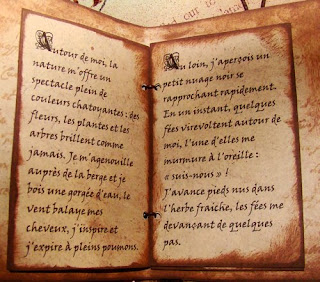 Autour de moi, la
nature m'offre un
spectacle plein de
couleurs chatoyantes : des
fleurs, les plantes et les
arbres brillent comme
jamais. Je m'agenouille
auprès de la berge et je
bois une gorgée d'eau, le
vent balaye mes
cheveux, j'inspire et
j'expire à pleins poumons.
Au loin, j'aperçois un
petit nuage noir se
rapprochant rapidement.
En un instant, quelques
fées virevoltent autour de
moi, l'une d'elles me
murmure à l'oreille :
« suis-nous » !
J'avance pieds nus dans
l'herbe fraîche, les fées me
devançant de quelques
pas.